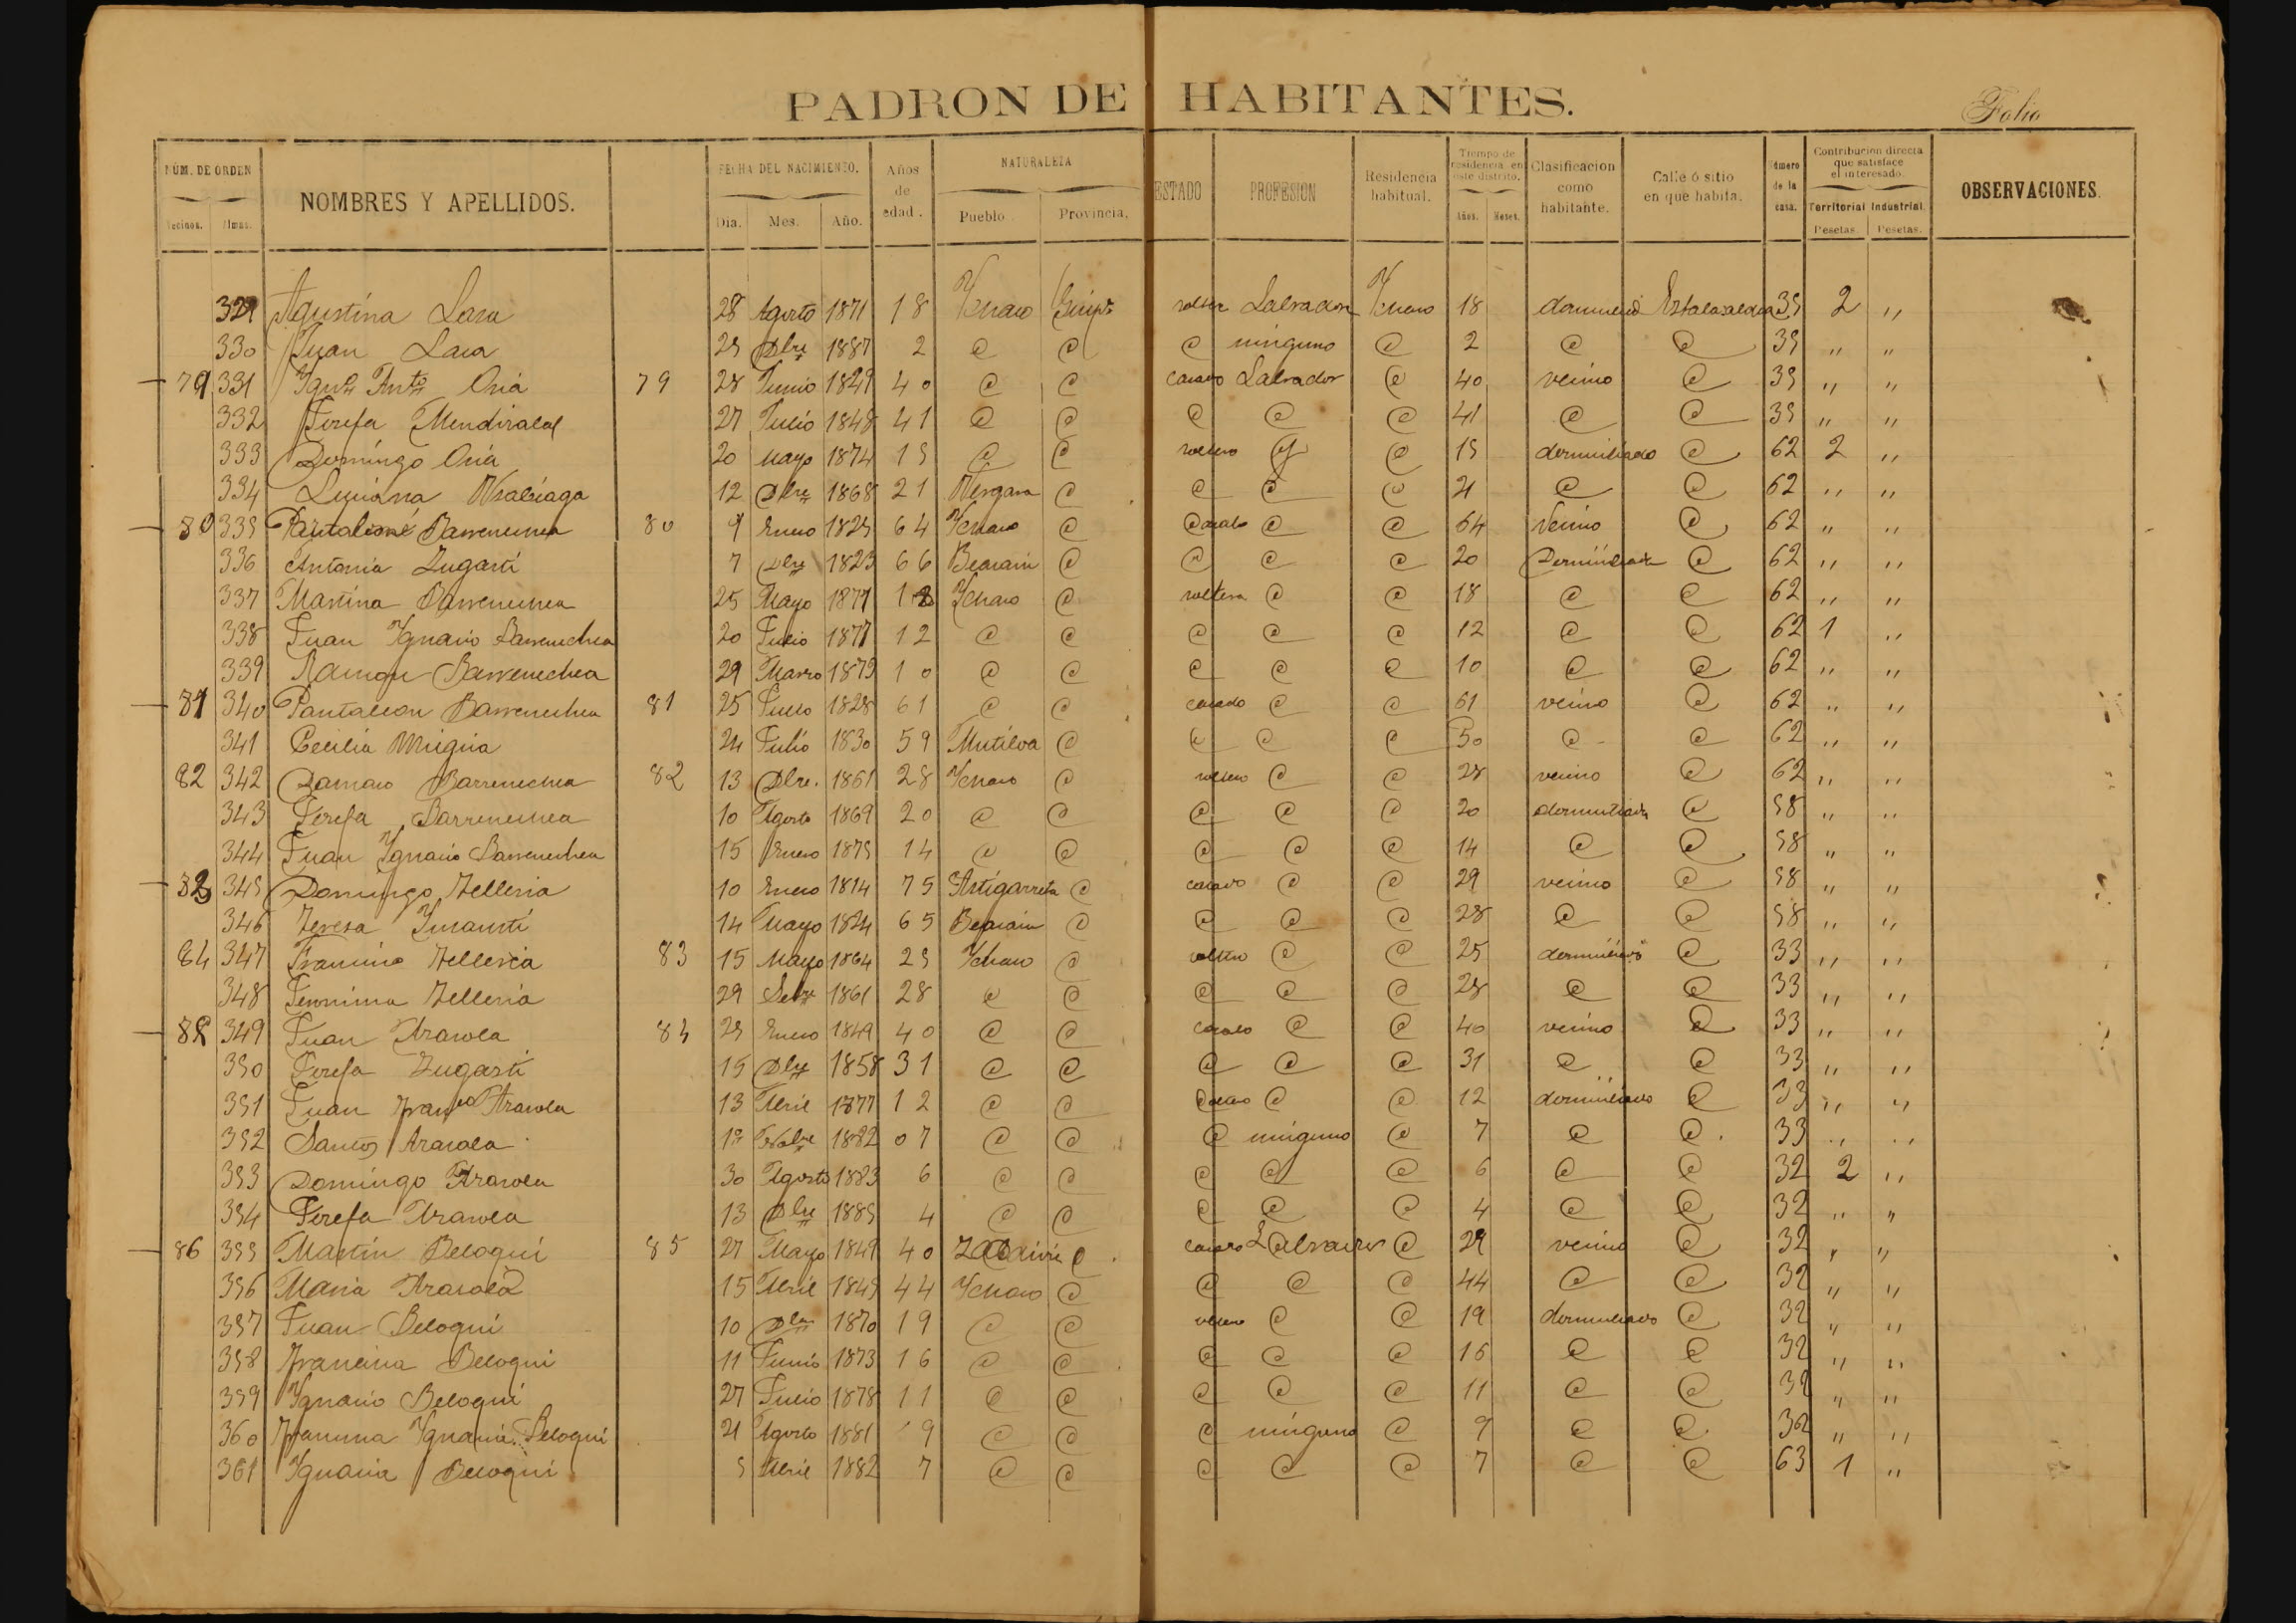 PADRON DE HABITANTES.
Folio
NÚM. DE ORDEN
Vecinos. Almas.
NOMBRES Y APELLIDOS.
FECHA DEL NACIMIENTO.
Dia. Mes. Año.
Años de edad.
NATURALEZA
Pueblo Provincia.
ESTADO
PROFESION
Residencia habitual.
Tiempo de residencia en este distrito.
Años. Meses.
Clasificacion como habitante.
Calle ó sitio en que habita.
Número de la casa.
Contribucion directa que satisface el interesado.
Territorial Industrial.
Pesetas. Pesetas.
OBSERVACIONES.
329 Agustina Lasa 28 Agosto 1871 18 Ychaso Guipª solter Labradora Ychaso 18 39 2 "
330 Juan Lasa 25 Dbre 1887 2 @ @ @ ninguno @ 2 @ @ 39 " "
79 331 Ygnº Antº Oria 79 28 Junio 1849 40 @ @ casado Labrador @ 40 vecino @ 39 " "
332 Josefa 27 Julio 1848 41 @ @ @ @ @ 41 @ @ 39 " "
333 Domingo Oria 20 Mayo 1874 15 @ @ soltero @ @ 15 domiciliado @ 62 2 "
334 Luciana 12 Dbre 1868 21 Vergara @ @ @ @ 21 @ @ 62 " "
80 335 Barrenechea 80 9 Enero 1825 64 Ychaso @ Casado @ @ 64 Vecino @ 62 " "
336 Antonia Zugasti 7 Dbre 1823 66 Beasain @ @ @ @ 20 Domiciliada @ 62 " "
337 Martina Barrenechea 25 Mayo 1871 18 Ychaso @ soltera @ @ 18 @ @ 62 " "
338 Juan Ygnacio Barrenechea 20 Julio 1877 12 @ @ @ @ @ 12 @ @ 62 1 "
339 Ramon Barrenechea 29 Marzo 1879 10 @ @ @ @ @ 10 @ @ 62 " "
81 340 Pantaleon Barrenechea 81 25 1828 61 @ @ casado @ @ 61 vecino @ 62 " "
341 Cecilia Mugica 24 Julio 1830 59 Mutiloa @ @ @ @ 50 @ @ 62 " "
82 342 Damaso Barrenechea 82 13 Dbre. 1861 28 Ychaso @ soltero @ @ 28 vecino @ 62 " "
343 Josefa Barrenechea 10 Agosto 1869 20 @ @ @ @ @ 20 domiciliada @ 58 " "
344 Juan Ygnacio Barrenechea 15 Enero 1875 14 @ @ @ @ @ 14 @ @ 58 " "
83 345 Domingo Telleria 10 Enero 1814 75 Astigarreta @ casado @ @ 29 vecino @ 58 " "
346 Teresa 14 Mayo 1824 65 Beasain @ @ @ @ 28 @ @ 58 " "
84 347 Francisco Telleria 83 15 Mayo 1864 25 Ychaso @ soltero @ @ 25 domiciliado @ 33 " "
348 Jeronima Telleria 29 Setre 1861 28 @ @ @ @ @ 28 @ @ 33 " "
85 349 Juan Arasola 84 25 Enero 1849 40 @ @ casado @ @ 40 vecino @ 33 " "
350 Josefa Zugasti 15 Dbre 1858 31 @ @ @ @ @ 31 @ @ 33 " "
351 Juan Franco Arasola 13 Abril 1877 12 @ @ @ @ 12 domiciliado @ 33 " "
352 Santos Arasola 1º Nobre 1882 07 @ @ @ ninguno @ 7 @ @ 33 " "
353 Domingo Arasola 30 Agosto 1883 6 @ @ @ @ @ 6 @ @ 32 2 "
354 Josefa Arasola 13 Dbre 1885 4 @ @ @ @ @ 4 @ @ 32 " "
86 355 Martin Beloqui 85 27 Mayo 1849 40 @ casado Labrador @ 29 vecino @ 32 " "
356 Maria Arasola 15 Abril 1845 44 Ychaso @ @ @ @ 44 @ @ 32 " "
357 Juan Beloqui 10 Dbre 1870 19 @ @ soltero @ @ 19 domiciliado @ 32 " "
358 Francisca Beloqui 11 Junio 1873 16 @ @ @ @ @ 16 @ @ 32 " "
359 Ygnacio Beloqui 27 Julio 1878 11 @ @ @ @ @ 11 @ @ 32 " "
360 Francisca Ygnacia Beloqui 21 Agosto 1881 9 @ @ @ ninguno @ 9 @ @ 32 " "
361 Ygnacia Beloqui 5 Abril 1882 7 @ @ @ @ @ 7 @ @ 63 1 "